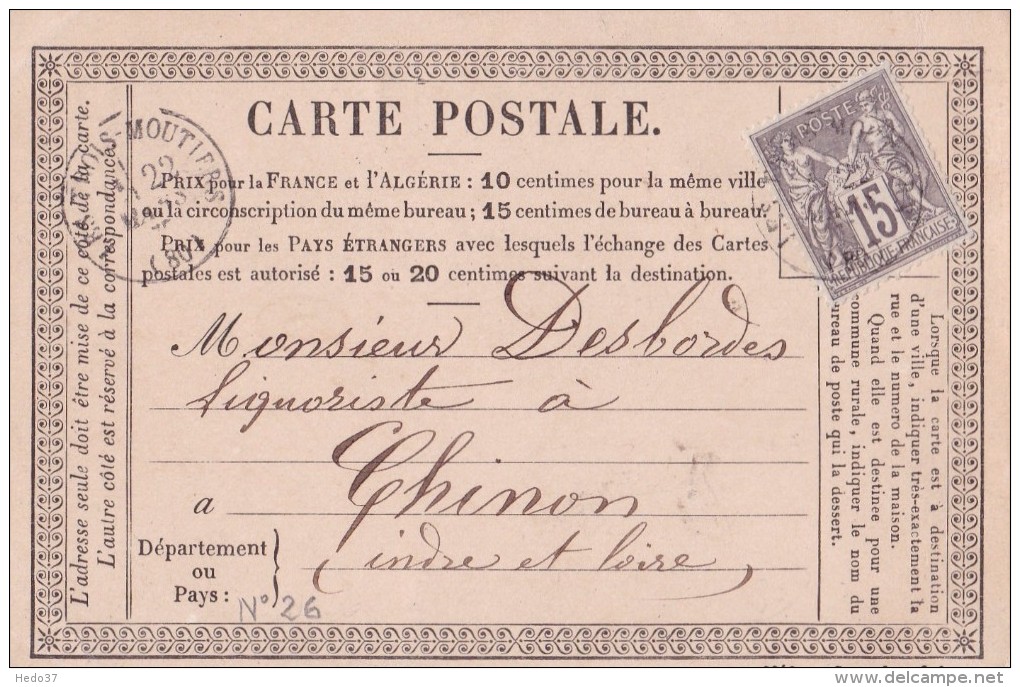 CARTE POSTALE.
PRIX pour la FRANCE et l'ALGÉRIE : 10 centimes pour la même ville
ou la circonscription du même bureau ; 15 centimes de bureau à bureau.
PRIX pour les PAYS ÉTRANGERS avec lesquels l'échange des Cartes
postales est autorisé : 15 ou 20 centimes suivant la destination.
Monsieur Desbordes
liquoriste à
a Chinon
Département
ou
Pays :
indre et loire
N° 26
L'adresse seule doit être mise de ce côté de la carte.
L'autre côté est réservé à la correspondance.
MOUTIERS
22
(80)
POSTE
15
REPUBLIQUE FRANÇAISE
Lorsque la carte est à destination
d'une ville, indiquer très-exactement la
rue et le numero de la maison.
Quand elle est destinée pour une
commune rurale, indiquer le nom du
bureau de poste qui la dessert.
Hedo37
delcampe.net